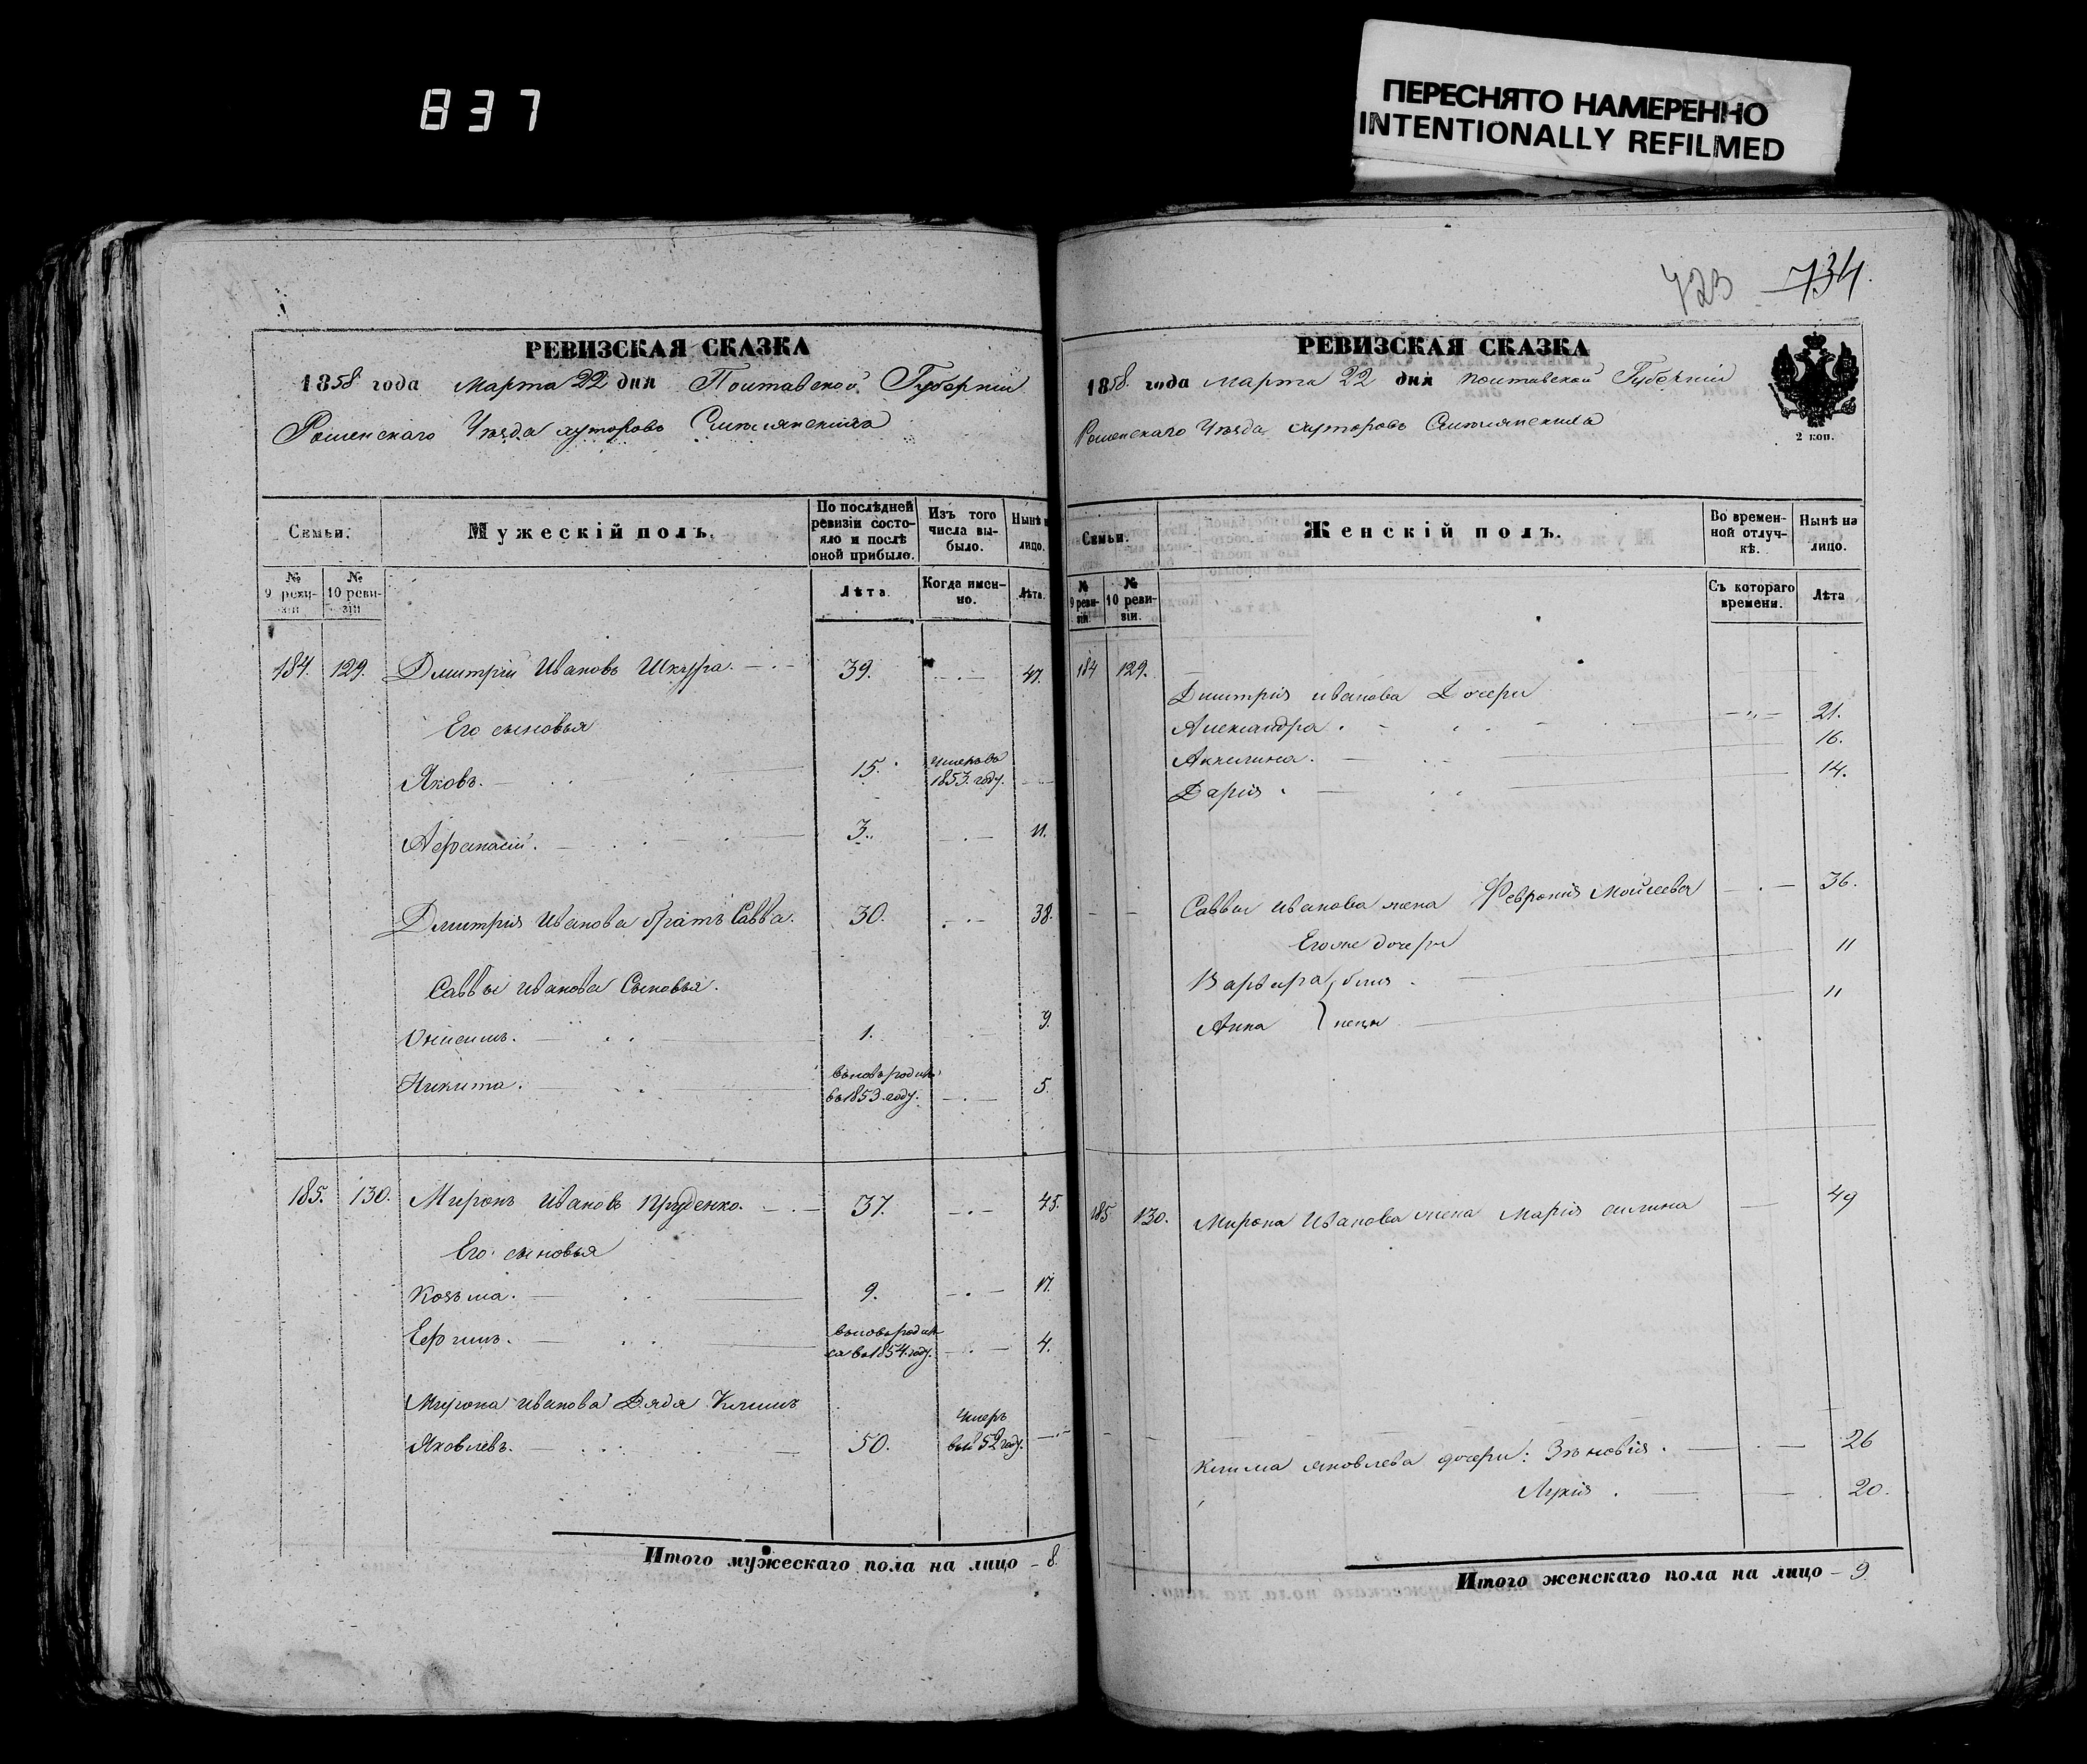 837
ПЕРЕСНЯТО НАМЕРЕННО
INTENTIONALLY REFILMED
РЕВИЗСКАЯ СКАЗКА
1858 года Марта 22 дня Полтавской Губерніи
Роменскаго Уѣзда хуторовъ
Семьи.
Мужескій полъ.
По послѣдней ревизіи состояло и послѣ оной прибыло.
Изъ того числа выбыло.
Нынѣ на лицо.
№ 9 ревизіи
№ 10 ревизіи
Лѣта.
Когда именно.
Лѣта.
184. 129. Дмитрій Ивановъ Шкурра. 39. 47.
Его сыновья
Яковъ. 15. умеръ въ 1853. году.
Афанасій. 3. 11.
Дмитрія Иванова братъ Савва. 30. 38.
Саввы Иванова Сыновья.
Онисимъ. 1. 9.
Никита. вновь родился въ 1853. году. 5.
185. 130. Миронъ Ивановъ Пруденко. 37. 45.
Его сыновья
Козьма. 9. 17.
Ефимъ. вновь родился въ 1854. году. 4.
Мирона Иванова Дядя Климъ
Яковлевъ. 50. Умеръ въ 1852 году.
Итого мужескаго пола на лицо - 8.
723 734.
РЕВИЗСКАЯ СКАЗКА
1858. года Марта 22 дня Полтавской Губерніи
Роменскаго Уѣзда хуторовъ
2 коп.
Семьи.
Женскій полъ.
Во временной отлучкѣ.
Нынѣ на лицо.
№ 9 ревизіи.
№ 10 ревизіи.
Съ котораго времени.
Лѣта
184 129.
Дмитрія Иванова Дочери
Александра. 21.
Акилина. 16.
Дарія. 14.
Саввы Иванова жена Февронія Моисеева 36.
Его же дочери
Варвара близ 11
Анна нецы 11
185. 130. Мирона Иванова жена Марія 49
Клима Яковлева дочери: Зѣновія. 26
Лукія. 20.
Итого женскаго пола на лицо - 9